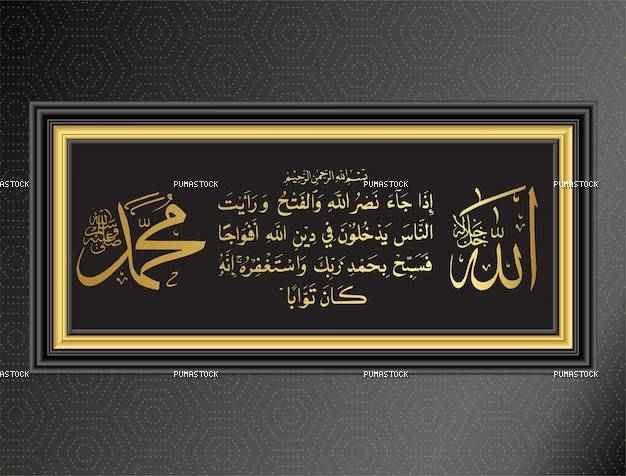 بِسْمِ اللهِ الرَّحْمٰنِ الرَّحِيْمِ
إِذَا جَآءَ نَصْرُ اللَّهِ وَالْفَتْحُ وَرَأَيْتَ
النَّاسَ يَدْخُلُونَ فِي دِينِ اللَّهِ أَفْوَاجًا
فَسَبِّحْ بِحَمْدِ رَبِّكَ وَاسْتَغْفِرْهُ ۚ إِنَّهُ
كَانَ تَوَّابًا
الله
جل جلاله
محمد
صلى الله عليه وسلم
PUMASTOCK PUMASTOCK PUMASTOCK PUMASTOCK
PUMASTOCK PUMASTOCK PUMASTOCK PUMASTOCK